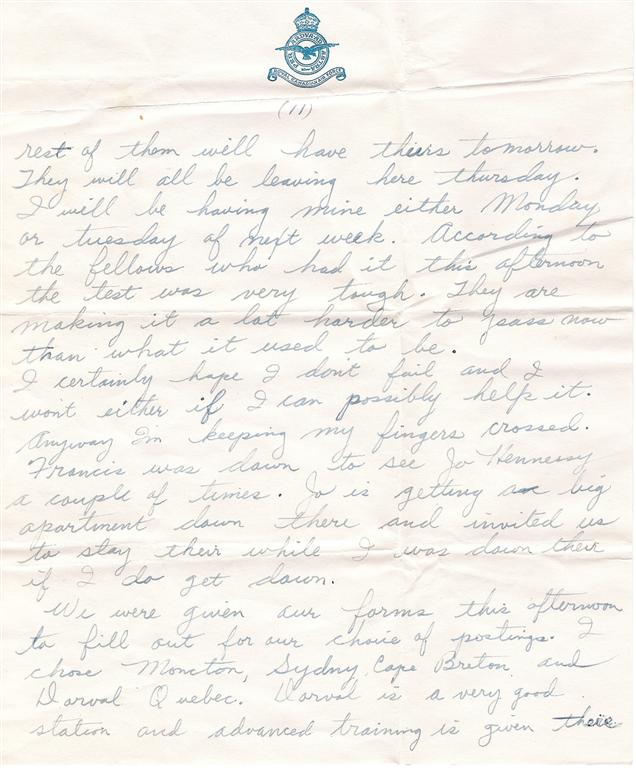 ROYAL CANADIAN AIR FORCE
(11)
rest of them will have theirs tomorrow.
They will all be leaving here thursday.
I will be having mine either Monday
or tuesday of next week. According to
the fellows who had it this afternoon
the test was very tough. They are
making it a lot harder to pass now
than what it used to be.
I certainly hope I dont fail and I
wont either if I can possibly help it.
Anyway Im keeping my fingers crossed.
Francis was down to see Jo Hennessy
a couple of times. Jo is getting a big
apartment down there and invited us
to stay their while I was down their
if I do get down.
We were given our forms this afternoon
to fill out for our choice of postings. I
chose Moncton, Sydny, Cape Breton and
Dorval Quebec. Dorval is a very good
station and advanced training is given there